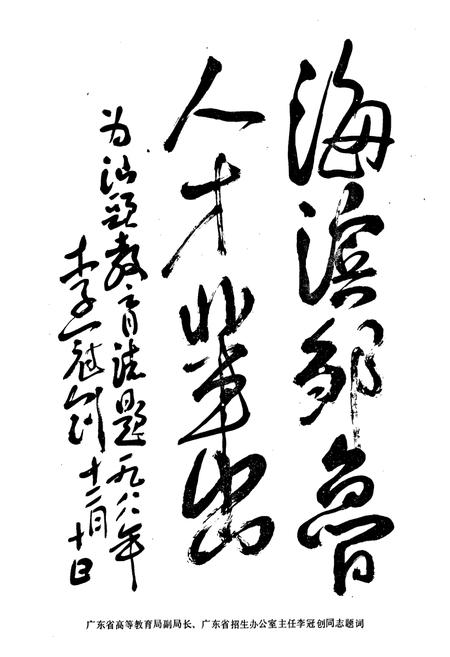 海滨邹鲁
人才辈出
为汕头教育志题一九八八年
李冠创 十二月十日
广东省高等教育局副局长、广东省招生办公室主任李冠创同志题词